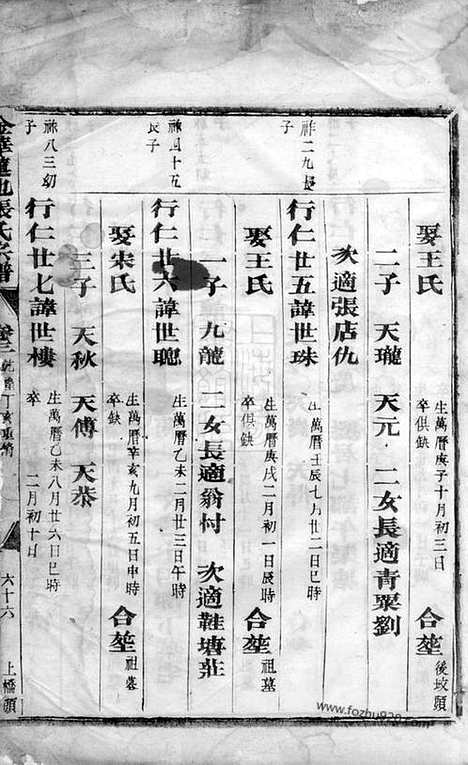 娶王氏 生萬曆庚子十月初三日 卒俱缺 合塟後坟頭
二子 天瓏 天元 二女長適青粟劉
次適張店仇
祚二九長 行仁廿五諱世珠 生萬曆壬辰七月廿二日巳時
娶王氏 生萬曆庚戌二月初一日辰時 卒俱缺 合塟祖墓
一子 九龍 二女長適翁村 次適鞋塘莊
祿四十五長子 行仁廿六諱世聰 生萬曆乙未二月廿三日午時
娶宋氏 生萬曆辛亥九月初五日申時 卒缺 合塟祖蓉
三子 天秋 天傅 天恭
祿八三幼子 行仁廿七諱世樓 生萬曆乙未八月廿六日巳時 卒 二月初十日
張氏宗譜 卷三 乾隆丁亥重脩 六十六 上橋頭
www.fozhu920.com